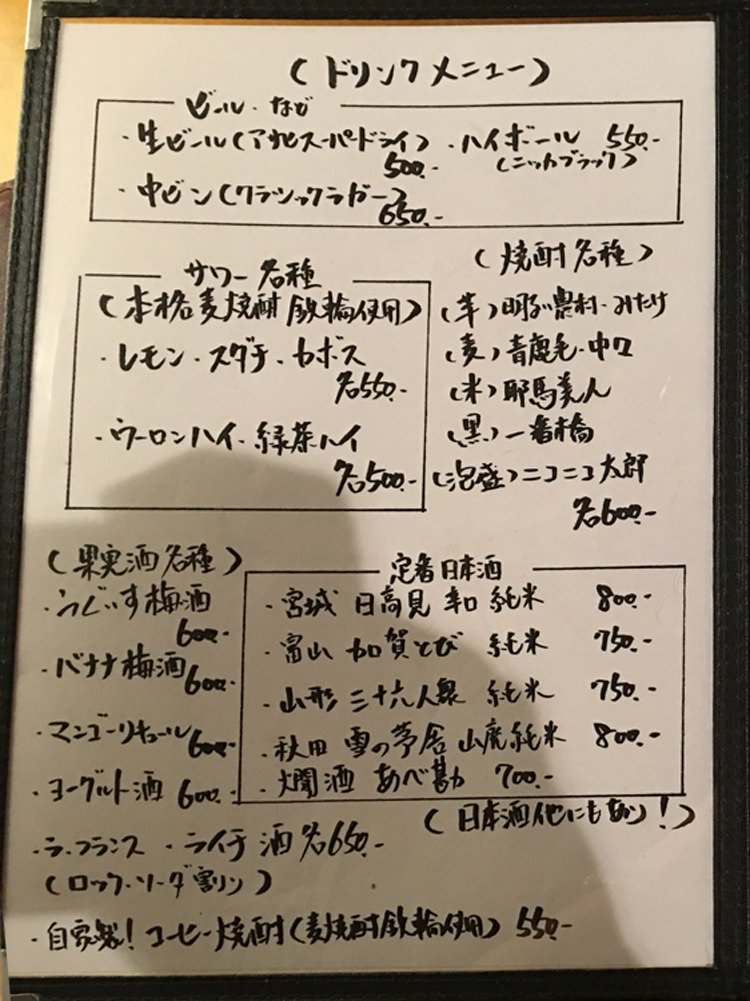 (ドリンクメニュー)
ビール・など
・生ビール(アサヒスーパードライ) 500.-
・ハイボール 550.-
(ニッカブラック)
・中ビン(クラシックラガー) 650.-
サワー各種
(本格麦焼酎 鉄輪使用)
・レモン・スダチ・カボス
各550.-
・ウーロンハイ・緑茶ハイ
各500.-
(焼酎各種)
(芋)明るい農村・みたけ
(麦)青鹿毛・中々
(米)耶馬美人
(黒)一番橋
(泡盛)ニコニコ太郎
各600.-
(果実酒各種)
・うぐいす梅酒 600.-
・バナナ梅酒 600.-
・マンゴーリキュール 600.-
・ヨーグルト酒 600.-
・ラ・フランス ・ライチ酒 各650.-
(ロック・ソーダ割リン)
定番日本酒
・宮城 日高見 辛口 純米 800.-
・富山 加賀とび 純米 750.-
・山形 三十六人衆 純米 750.-
・秋田 雪の茅舎 山廃純米 800.-
・燗酒 あべ勘 700.-
(日本酒他にもあり!)
・自家製!コーヒー焼酎(麦焼酎鉄輪使用) 550.-